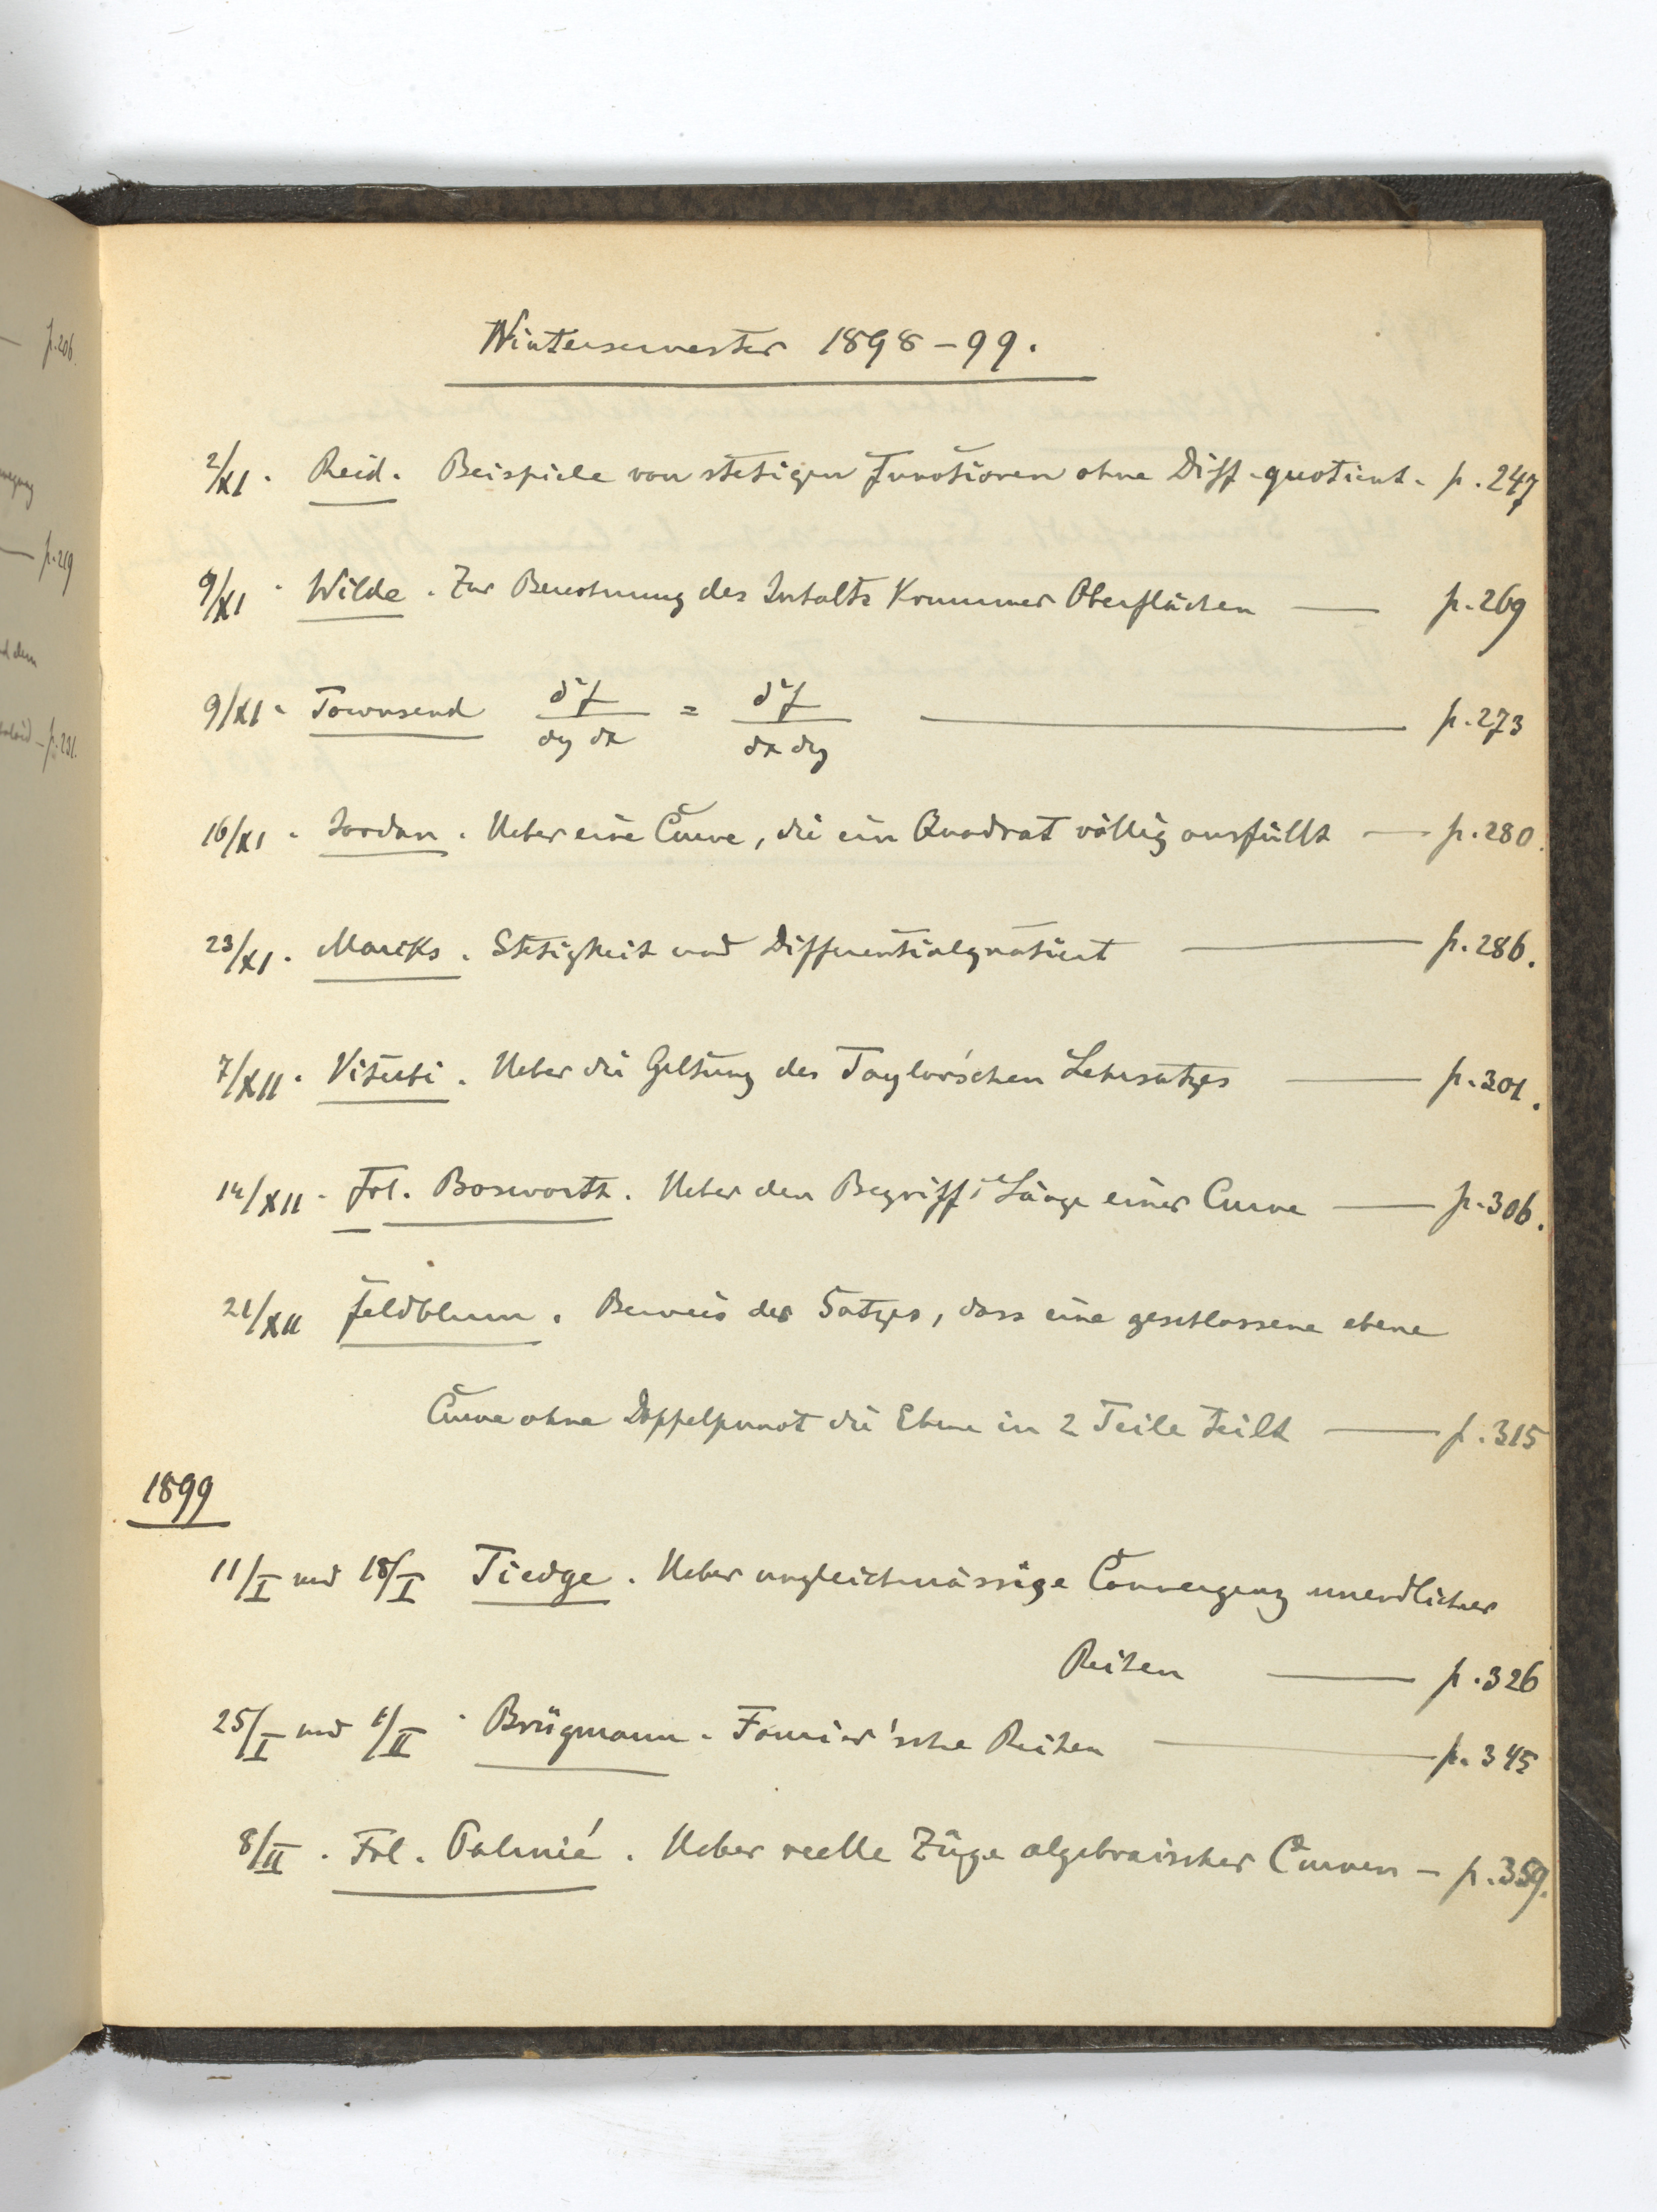 p.206.
p.219
p.231.
Wintersemester 1898-99.
2/XI. Reid. Beispiele von stetigen Functionen ohne Diff-quotient. p. 247
9/XI. Wilde. Zur Berechnung des Inhalts krummer Oberflächen — p. 269
9/XI. Townsend d²f/dy dx = d²f/dx dy — p. 273
16/XI. Jordan. Ueber eine Curve, die ein Quadrat völlig ausfüllt — p. 280.
23/XI. Marxks. Stetigkeit und Differentialquotient — p. 286.
7/XII. Viterbi. Ueber die Geltung des Taylor'schen Lehrsatzes — p. 301.
14/XII. Frl. Bosworth. Ueber den Begriff: Länge einer Curve — p. 306.
21/XII Feldblum. Beweis des Satzes, dass eine geschlossene ebene
Curve ohne Doppelpunct die Ebene in 2 Teile teilt — p. 315
1899
11/I und 18/I Tiedge. Ueber ungleichmässige Convergenz unendlicher
Reihen — p. 326
25/I und 1/II. Brügmann. Fourier'sche Reihen — p. 345
8/II. Frl. Palmié. Ueber reelle Züge algebraischer Curven — p. 359.